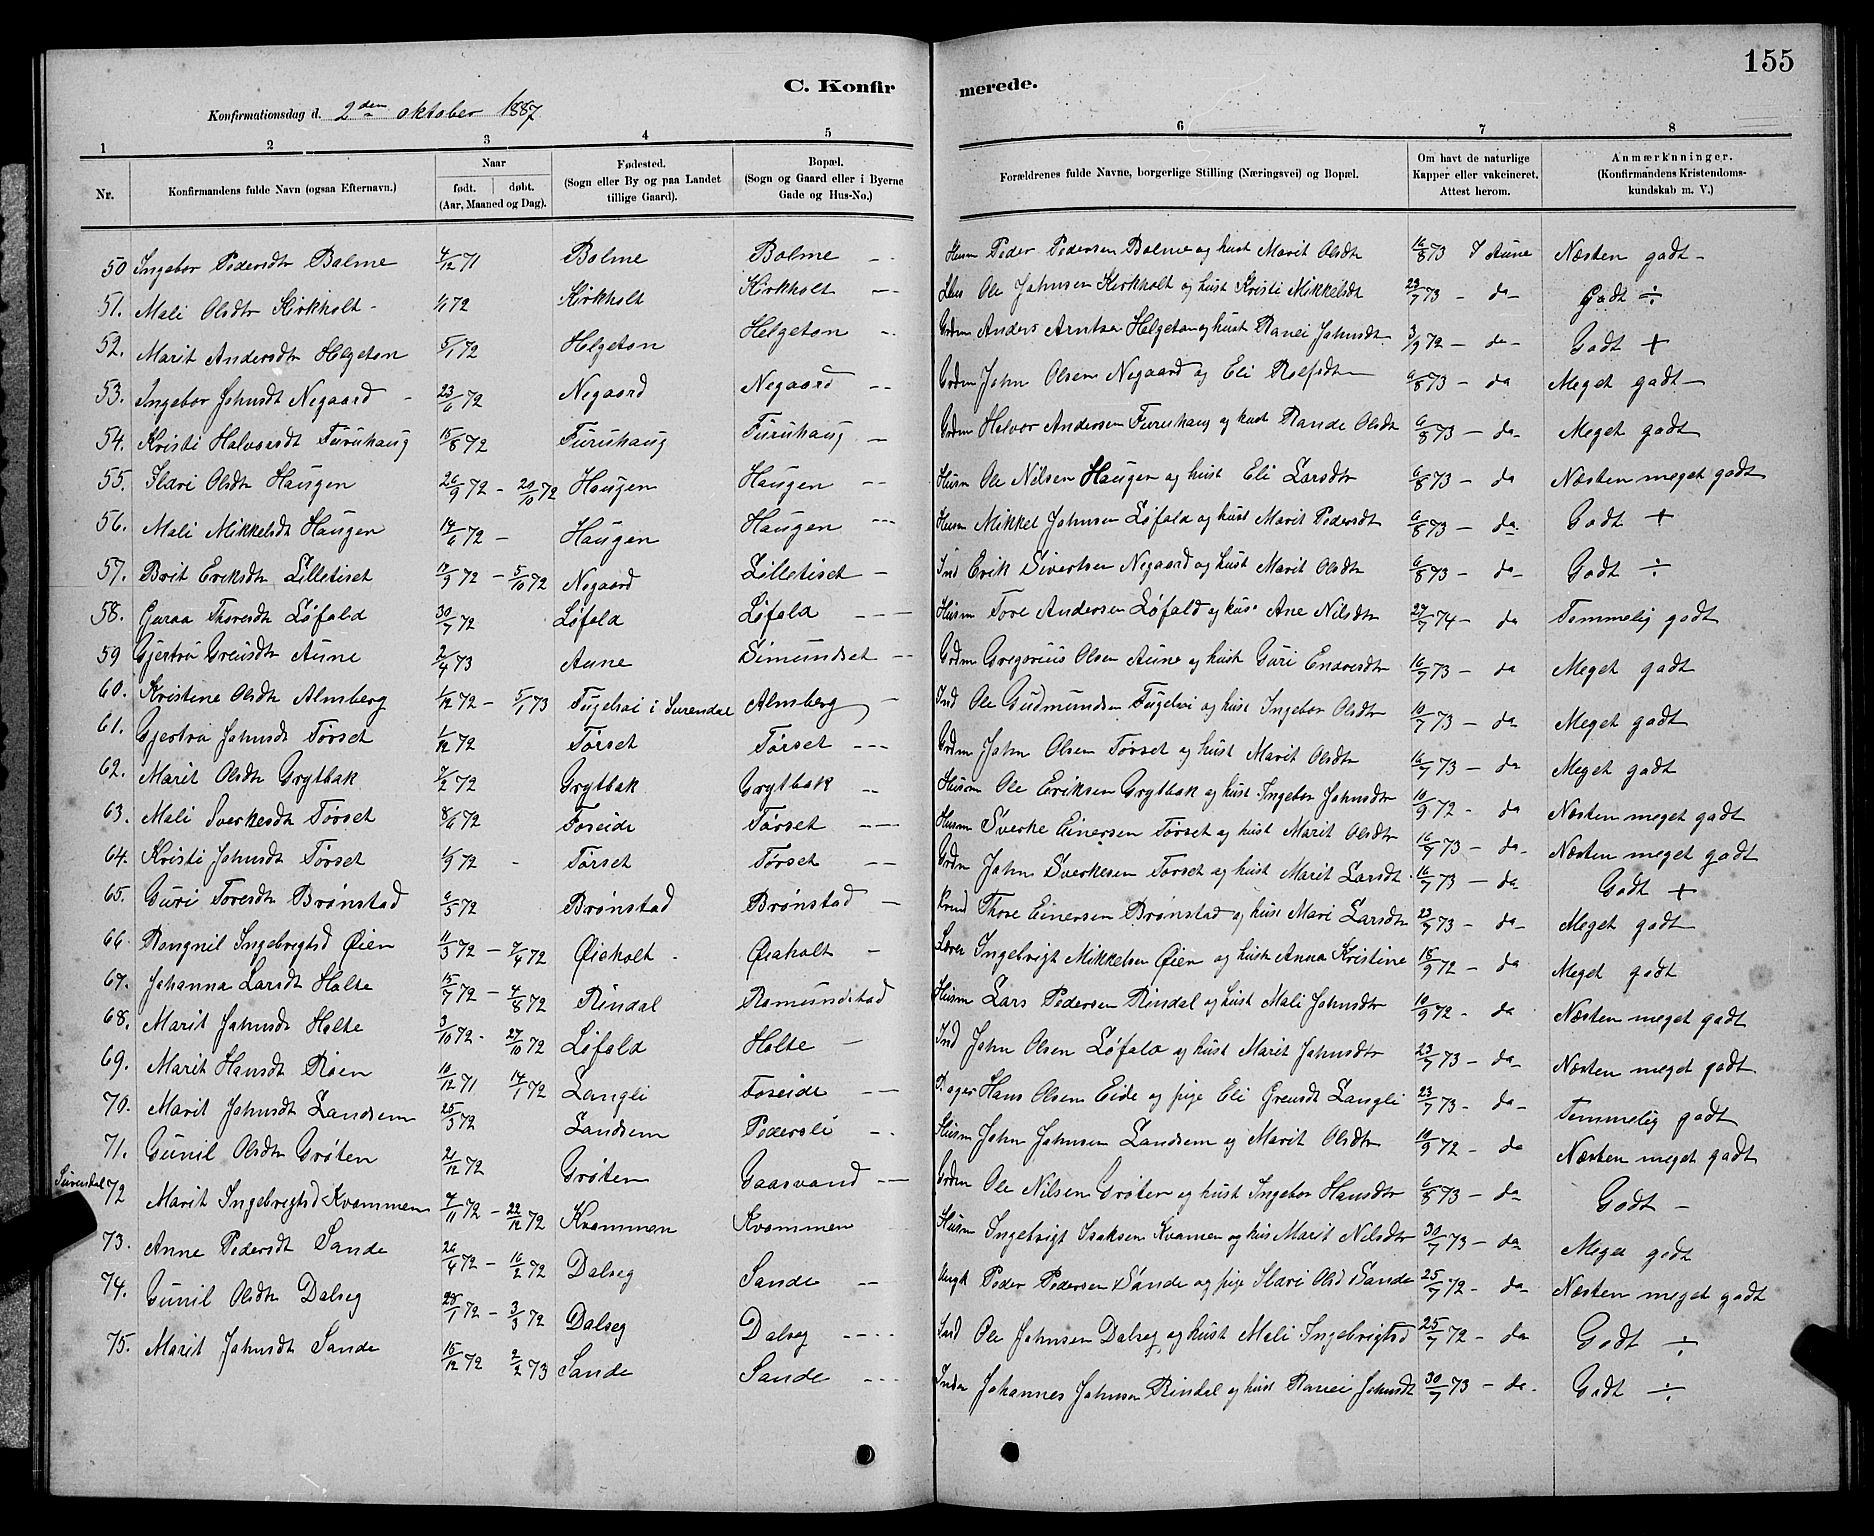 155
C. Konfirmerede.
Konfirmationsdag d. 2den oktober 1887
1 2 3 4 5 6 7 8
Nr. Konfirmandens fulde Navn (ogsaa Efternavn.) Naar født. døbt. (Aar, Maaned og Dag). Fødested. (Sogn eller By og paa Landet tillige Gaard). Bopæl. (Sogn og Gaard eller i Byerne Gade og Hus-No.) Forældrenes fulde Navne, borgerlige Stilling (Næringsvei) og Bopæl. Om havt de naturlige Kapper eller vakcineret. Attest herom. Anmærknninger. (Konfirmandens Kristendomskundskab m. V.)
50 Ingebor Pedersdtr Bolme 4/12 71 Bolme Bolme -- Husm Peder Pedersen Bolme og hust Marit Olsdt 16/8 73 I Aune Næsten godt -
51. Mali Olsdtr Kirkholt - 72 Kirkholt Kirkholt -- Ole Johnsen Kirkholt og hust Kristi Mikkelsdt 23/7 73 - da - Godt ÷
52. Marit Andersdtr Helgeton 5/1 72 Helgeton Helgeton -- Grdm Anders Arntsen Helgeton og hust Ranei Johnsdt 3/9 72 - da - Godt +
53. Ingebor Johnsdt Negaard - 23/6 72 Negaard Negaard -- Grdm John Olsen Negaard og Eli Rolfsdt 6/8 73 - da Meget godt -
54. Kristi Halvorsdt Furuhaug 15/8 72 Furuhaug Furuhaug - Grdm Halvor Andersen Furuhaug og hust Rande Olsdt 6/8 73 - da - Meget godt
55. Sldri Olsdtr Haugen 26/9 72 - 20/10 72 Haugen Haugen -- Husm Ole Nilsen Haugen og hust Eli Larsdtr 6/8 73 - da Næsten meget godt
56. Mali Mikkelsdt Haugen 14/6 72 - Haugen Haugen --- Husm Mikkel Johnsen Løfald og hust Marit Pedersdt 6/8 73 - da - Godt +
57. Brit Eriksdtr Lilletiset 17/9 72 - 5/10 72 Negaard Lilletiset - Ind Erik Sivertsen Negaard og hust Marit Olsdt 6/8 73 - da - Godt ÷
58. Guraa Thoresdt Løfald 30/7 72 Løfald Løfald --- Husm Tore Andersen Løfald og hus Ane Nilsdtr 27/7 74 - da Temmelig godt
59 Gjertru Greusdtr Aune 2/4 73 Aune Simundset -- Grdm Gregorius Olsen Aune og hust Guri Endresdtr 16/7 73 - da Meget godt
60. Kristine Olsdtr Almberg 1/12 72 - 5/1 73 Fugelsøi i Surendal Almberg - Ind Ole Gudmundsen Fugelsøi og hust Ingebor Olsdtr 10/7 73 - da Meget godt
61. Gjertru Johnsdt Tørset 1/12 72 Tørset Tørset --- Grdm John Olsen Tørset og hust Marit Olsdtr 16/7 73 - da Meget godt
62. Marit Olsdtr Grytbak 7/2 72 Grytbak Grytbak -- Husm Ole Eriksen Grytbak og hust Ingebor Johnsdtr 10/9 72 - da Næsten meget godt
63. Mali Sverkesdt Tørset 8/6 72 Foseide Tørset --- Husm Sverke Einersen Tørset og hust Marit Olsdtr 16/7 73 - da - Næsten meget godt
64. Kristi Johnsdt Tørset 72 - Tørset Tørset -- Grdm John Sverkesen Tørset og hust Marit Larsdt 16/7 73 - da Godt +
65. Guri Toresdtr Brønstad 6/5 72 Brønstad Brønstad - Thore Einersen Brønstad og hust Mari Larsdtr 23/7 73 - da - Meget godt
66. Rangnil Ingebrigtsd Øien 11/3 72 - 7/4 72 Øiaholt - Øiaholt - Lærer Ingebrigt Mikkelsen Øien og hust Anna Kristine 18/9 72 - da Meget godt
67. Johanna Larsdt Holte 15/7 72 - 4/8 72 Rindal Romundstad Husm Lars Pedersen Rindal og hust Mali Johnsdtr 10/9 72 - da Næsten meget godt
68. Marit Johnsdt Holte 3/10 72 - 27/10 72 Løfald Holte - Ind John Olsen Løfald og hust Marit Johnsdtr 23/7 73 - da - Næsten meget godt
69. Marit Hansdt Røen 10/12 71 14/7 72 Langli Foseide -- Hans Olsen Eide og pige Eli Greusdt Langli 23/7 73 - da - Temmelig godt
70. Marit Johnsdt Landsem 25/3 72 Landsem Pedersli -- Husm John Johnsen Landsem og Marit Olsdtr 10/9 72 - da Næsten meget godt
71. Gunil Olsdtr Grøten 21/12 72 Grøten Gaasvand -- Grdm Ole Nilsen Grøten og hust Ingebor Hansdtr 6/8 73 - da Godt -
Surendal 72 Marit Ingebrigtsd Kvammen 7/11 72 - 22/12 72 Kvammen Kvammen Husm Ingebrigt Isaksen Kvamen og hus Marit Nilsdtr 30/7 73 - da Meget godt
73. Anne Pedersdt Sande 26/4 72 - 16/2 72 Dalseg Sande -- Ungk Peder Pedersen Sande og pige Sldri Olsd Sande 25/7 72 - da - Næsten meget godt
74. Gunil Olsdtr Dalseg 28/1 72 - 3/3 72 Dalseg Dalseg ---- Ind Ole Johnsen Dalseg og hust Mali Ingebrigtsd 25/7 72 - da Godt ÷
75. Marit Johnsdt Sande 15/12 72 2/2 73 Sande Sande --- Johannes Johnsen Rindal og hust Ranei Johnsdt 30/7 73 - da - Godt ÷